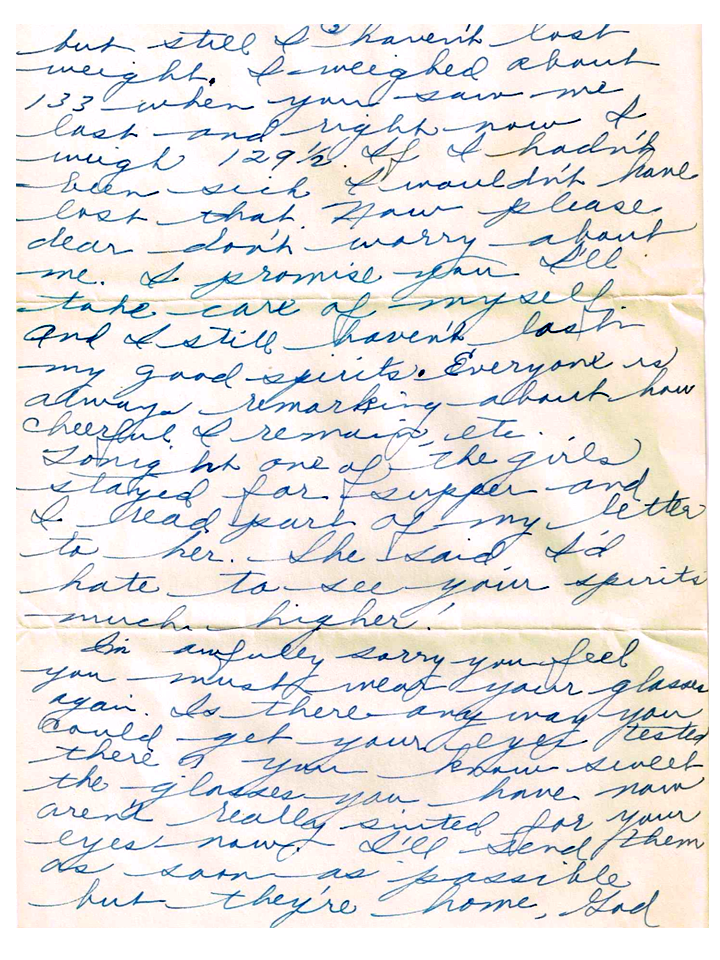 3
but still I haven't lost
weight. I weighed about
133 when you saw me
last and right now I
weigh 129½. If I hadn't
been sick I wouldn't have
lost that. Now please
dear don't worry about
me. I promise you I'll
take care of myself
and I still haven't lost
my good spirits. Everyone is
always remarking about how
cheerful I remain, etc.
Tonight one of the girls
stayed for supper and
I read part of my letter
to her. She said I'd
hate to see your spirits
much higher!
I'm awfully sorry you feel
you must wear your glasses
again. Is there any way you
could get your eyes tested
there? you know sweet
the glasses you have now
aren't really suited for your
eyes now. I'll send them
as soon as possible
but they're home, God